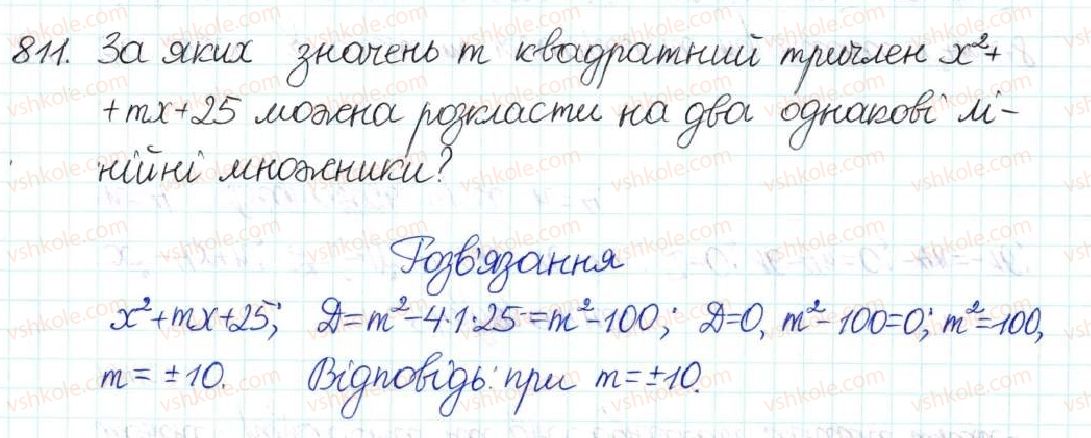 811. За яких значень m квадратний тричлен x²+
+mx+25 можна розкласти на два однакові лі-
нійні множники?
Розв'язання
x²+mx+25; Д=m²-4·1·25=m²-100; Д=0, m²-100=0; m²=100,
m=±10. Відповідь: при m=±10.